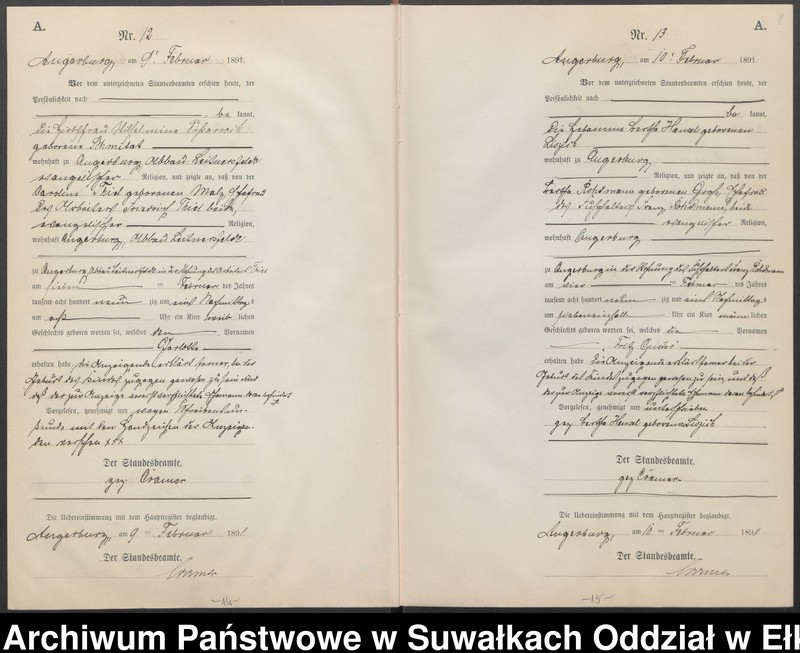 A.
Nr. 12
Angerburg, am 9t Februar 1891.
Vor dem unterzeichneten Standesbeamten erschien heute, der
Persönlichkeit nach
be kannt,
die Hirthfrau Wilhelmine
geborene Schmilat
wohnhaft zu Angerburg Abbau Leitnersfelde
evangelischer Religion, und zeigte an, daß von der
Caroline Thiel geborenen Malz, Ehefrau
des Arbeiters Friedrich Thiel beide,
evangelischer Religion,
wohnhaft Angerburg, Abbau Leitnersfelde
zu Angerburg Abbau Leitnersfelde in der Wohnung des Arbeiters Thiel
am sieben Februar des Jahres
tausend acht hundert neun zig und eins Nachmittags
um acht Uhr ein Kind weib lichen
Geschlechts geboren worden sei, welches den Vornamen
Charlotte
erhalten habe, die Anzeigende erklärt ferner, bei der
Geburt des Kindes zugegen gewesen zu sein und
daß der zur Anzeige zuerst verpflichtete Ehemann
Vorgelesen, genehmigt und wegen Schreibensun-
kunde mit den Handzeichen der Anzeigen-
den versehen +++
Der Standesbeamte.
gez Cramer
Die Uebereinstimmung mit dem Hauptregister beglaubigt.
Angerburg, am 9 ten Februar 1891.
Der Standesbeamte.
Cramer
-14-
A.
8
Nr. 13
Angerburg, am 10t Februar 1891.
Vor dem unterzeichneten Standesbeamten erschien heute, der
Persönlichkeit nach
be kannt,
die Hebamme Bertha Hensel geborenen
wohnhaft zu Angerburg
Religion, und zeigte an, daß von der
Bertha geborenen Groß, Ehefrau
des Franz beide
evangelischer Religion,
wohnhaft Angerburg
zu Angerburg in der Wohnung des Franz
am vier Februar des Jahres
tausend acht hundert neun zig und eins Nachmittags
um siebeneinhalb Uhr ein Kind männ lichen
Geschlechts geboren worden sei, welches die Vornamen
Fritz Gustav
erhalten habe die Anzeigende erklärt ferner bei der
Geburt des Kindes zugegen gewesen zu sein, und daß
der zur Anzeige zuerst verpflichtete Ehemann
Vorgelesen, genehmigt und unterschrieben
gez Bertha Hensel geborene
Der Standesbeamte.
gez Cramer
Die Uebereinstimmung mit dem Hauptregister beglaubigt.
Angerburg, am 10 ten Februar 1891.
Der Standesbeamte.
Cramer
-15-
Archiwum Państwowe w Suwałkach Oddział w Ełk